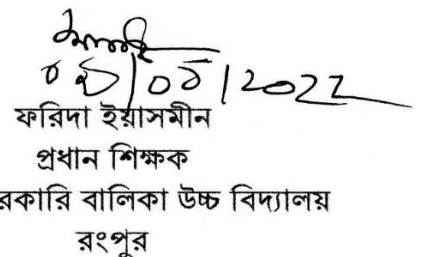 ফরিদা ইয়াসমীন
প্রধান শিক্ষক
রকারি বালিকা উচ্চ বিদ্যালয়
রংপুর